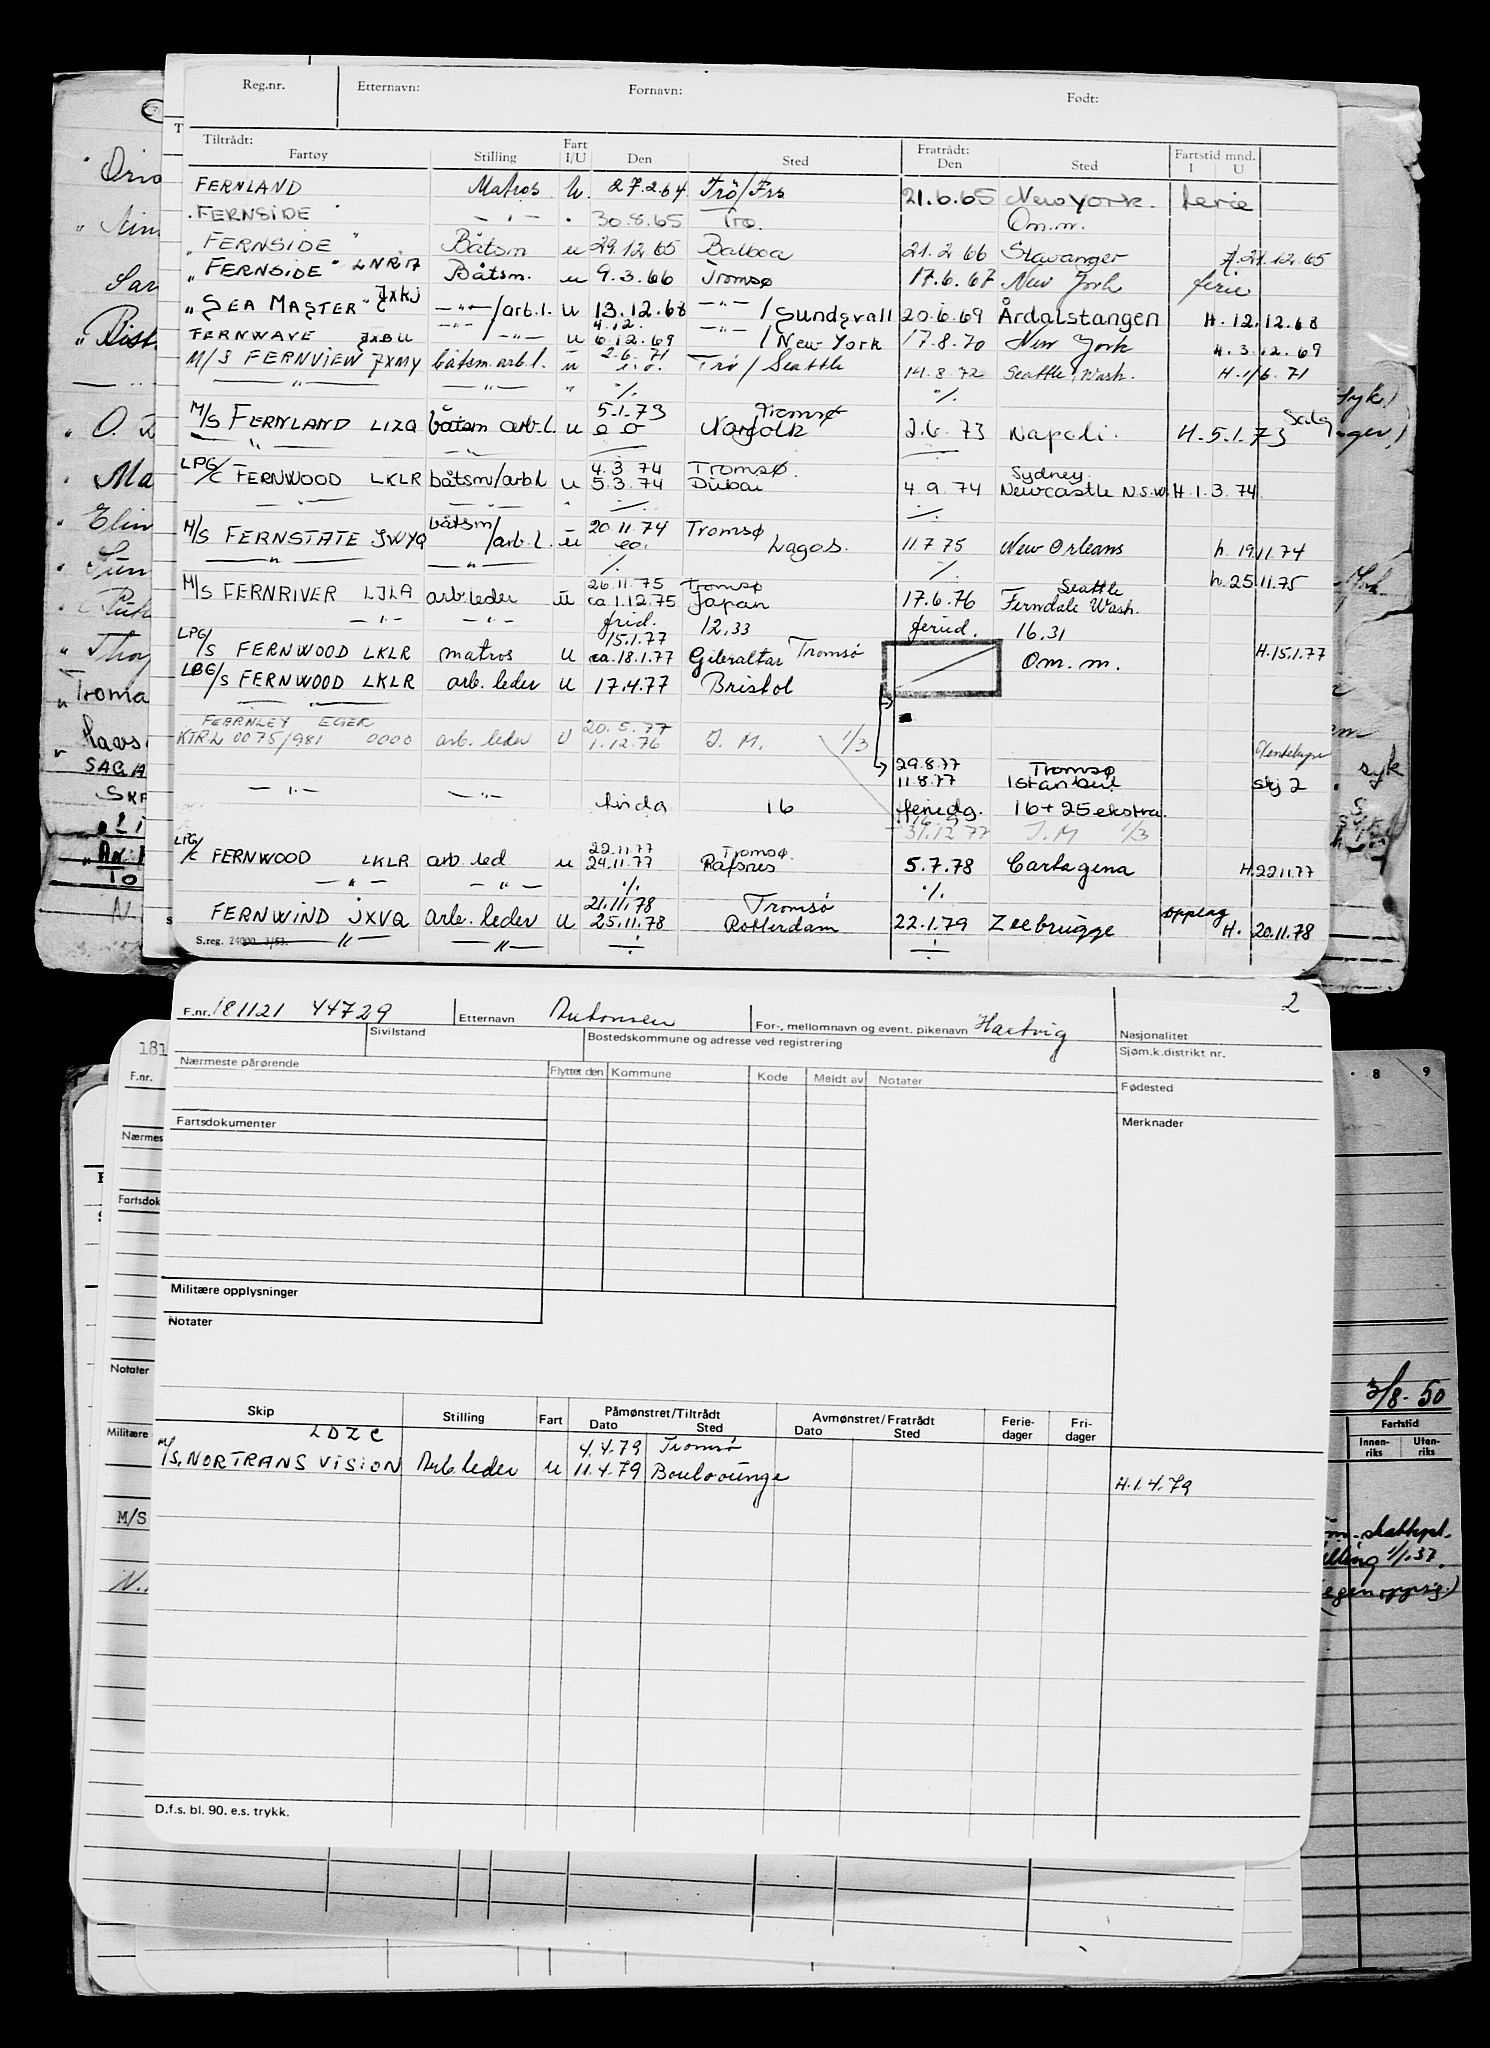 Reg.nr. Etternavn: Fornavn: Født:
Tiltrådt: Fart Fratrådt: Fartstid mnd.
Fartøy Stilling I/U Den Sted Den Sted I U
FERNLAND Matros u. 27.2.64 Trö/Frs 21.6.65 New York. ferie
FERNSIDE — " — 30.8.65 Trö. Om.m.
"FERNSIDE" Båtsm u 29.12.65 Balboa 21.2.66 Stavanger 21.12.65
"FERNSIDE" LNRA Båtsm. u 9.3.66 Tromsø 17.6.67 New York ferie
"SEA MASTER" JXKJ — " —/arb.l. u 13.12.68 — " — / Sundsvall 20.6.69 Årdalstangen H. 12.12.68
FERNWAVE JXBU — " — / — " — u 4.12. 6.12.69 — " — / New York 17.8.70 New York H. 3.12.69
M/S FERNVIEW JXMY båtsm. arb.l. u 2.6.71 e.o. Trö / Seattle 14.8.72 Seattle Wash. H. 1/6.71
— " — — " — " ./. ./.
M/S FERNLAND LIZQ båtsm arb.l. u 5.1.73 e o Tromsø Norfolk 2.6.73 Napoli. H. 5.1.73 Salg
— " — — " —
LPG/C FERNWOOD LKLR båtsm/arb.l u 4.3.74 5.3.74 Tromsø Dubai 4.9.74 Sydney Newcastle N.S.W. H. 1.3.74
— " — — " — " ./. ./.
M/S FERNSTATE JWYQ båtsm/arb.l. u 20.11.74 eo. Tromsø Lagos. 11.7.75 New Orleans h. 19.11.74
— " — — " — ./. ./.
M/S FERNRIVER LJLA arb.leder u 26.11.75 ca 1.12.75 Tromsø Japan 17.6.76 Seattle Ferndale Wash. h. 25.11.75
— " — — " — frid. 12.33 feried. 16.31
LPG/S FERNWOOD LKLR matros u 15.1.77 ca. 18.1.77 Gibraltar Tromsø Om. m. H. 15.1.77
LPG/S FERNWOOD LKLR arb. leder u 17.4.77 Bristol
— " — — " —
FEARNLEY EGER 20.5.77
KTRL 0075/981 0000 arb. leder U 1.12.76 J. M. 1/3
29.8.77 Tromsø
11.8.77 Istanbul skj 2
— " — — " — 16 feriedg. 16 + 25 ekstra.
31.12.77 J.M 1/3
LPG/C FERNWOOD LKLR arb. led u 22.11.77 24.11.77 Tromsø. Rafsnes 5.7.78 Cartagena H. 22.11.77
— " — — " — ./. ./.
FERNWIND JXVQ arb. leder u 21.11.78 25.11.78 Tromsø Rotterdam 22.1.79 Zeebrugge opplag H. 20.11.78
S.reg. 24000. 3/53. — " — — " — ÷ ÷
2
F.nr. 181121 44729 Etternavn Antonsen For-, mellomnavn og event. pikenavn Hartvig
Sivilstand Bostedskommune og adresse ved registrering Nasjonalitet
Sjøm.k.distrikt nr.
Nærmeste pårørende Flyttet den Kommune Kode Meldt av Notater
Fødested
Fartsdokumenter Merknader
Militære opplysninger
Notater
Skip Stilling Fart Påmønstret/Tiltrådt Avmønstret/Fratrådt Ferie- Fri-
Dato Sted Dato Sted dager dager
LDZC 4.4.79 Tromsø
M/S. NORTRANS VISION Arb.leder u 11.4.79 H. 1.4.79
D.f.s. bl. 90. e.s. trykk.
O.
Ma
Elin
Troma
SAGA
To
181
F.nr.
Nærmes
Fartsdok
Notater
Militære
M/S
N..
syk
8 9
3/8-50
Fartstid
Innen- Uten-
riks riks